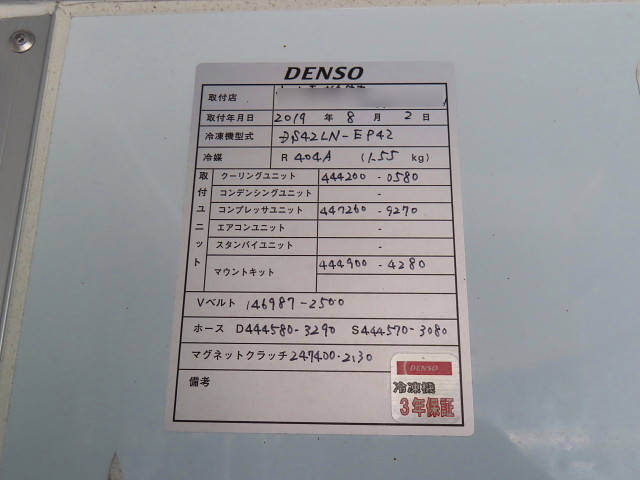 DENSO
取付店
取付年月日 2019 年 8 月 2 日
冷凍機型式 DS42LN-EP42
冷媒 R 404A (1.55 kg)
取付ユニット
クーリングユニット 444200-0580
コンデンシングユニット -
コンプレッサユニット 447260-9270
エアコンユニット -
スタンバイユニット -
マウントキット 444900-4280
Vベルト 146987-2500
ホース D444580-3290 S444570-3080
マグネットクラッチ 247400-2130
備考
DENSO
冷凍機
3年保証